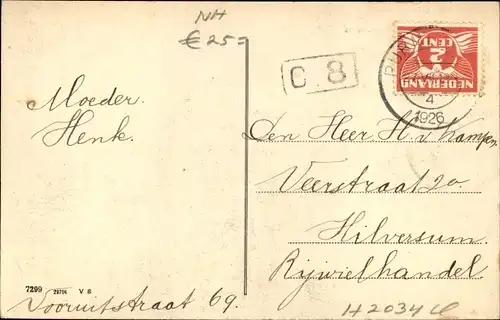 NH
€ 25=
C 8
2 CENT
NEDERLAND
4
1926
Moeder.
Henk.
Den Heer H. v Kampen
Veerstraat 20.
Hilversum.
Rijwielhandel.
7299 29706 V 8
Vooruitstraat 69.